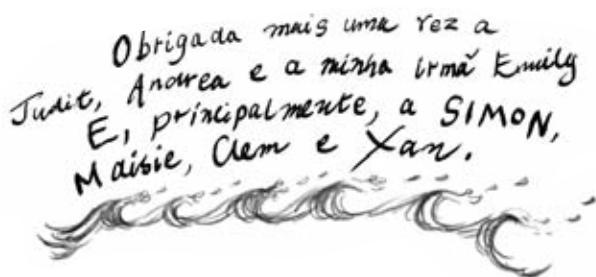 Obrigada mais uma vez a
Judit, Andrea e a minha irmã Emily
E, principalmente, a SIMON,
Maisie, Clem e Xan.